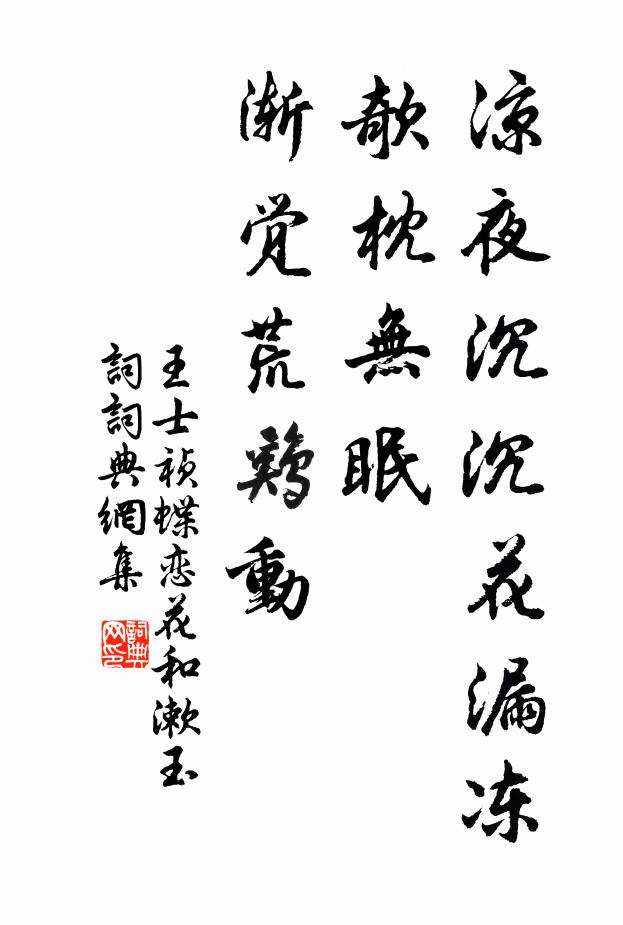 凉夜沉沉花漏冻
欹枕無眠
渐觉荒鷄動
王士禎蝶恋花和漱玉
詞詞典網集
詞典网印